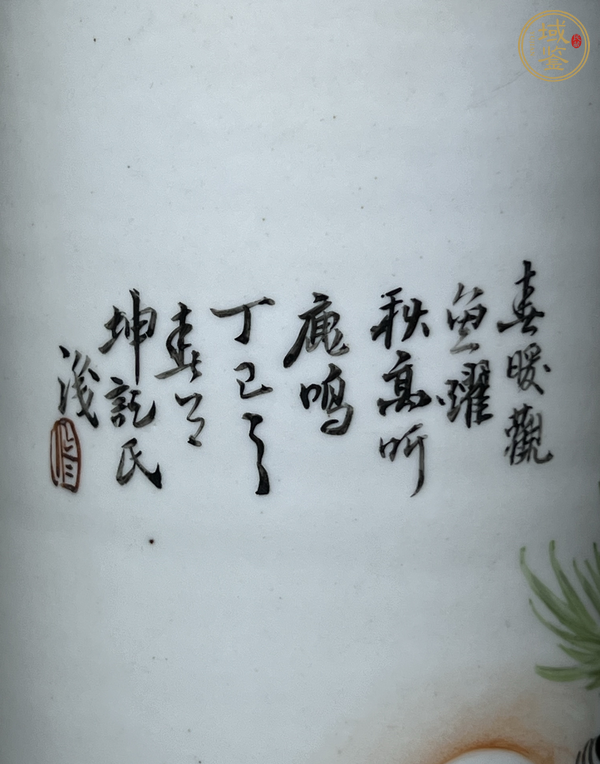 春暖觀
魚躍
秋高听
鹿鳴
丁巳之
春
坤記氏
域鉴